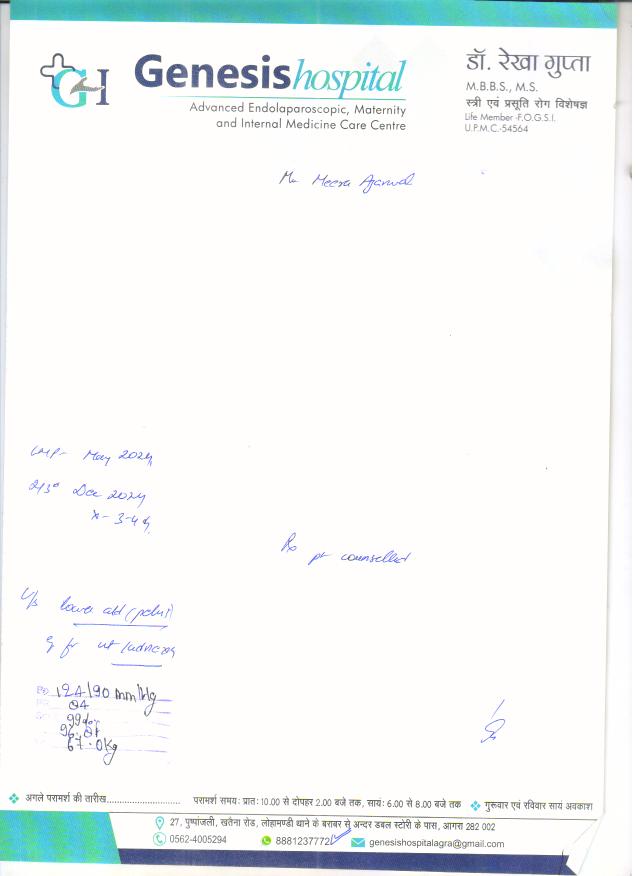 GI Genesis hospital
Advanced Endolaparoscopic, Maternity
and Internal Medicine Care Centre
डॉ. रेखा गुप्ता
M.B.B.S., M.S.
स्त्री एवं प्रसूति रोग विशेषज्ञ
Life Member -F.O.G.S.I.
U.P.M.C.-54564
Meera Agarwal
LMP- May 2024
Dec 2024
x- 3-4 d
Rx pt counselled
lower abd (pelvis)
124/90 mm/Hg
84
99%
67.0kg
अगले परामर्श की तारीख............................
परामर्श समय: प्रातः 10.00 से दोपहर 2.00 बजे तक, सायं: 6.00 से 8.00 बजे तक
गुरूवार एवं रविवार सायं अवकाश
27, पुष्पांजली, खतैना रोड, लोहामण्डी थाने के बराबर से अन्दर डबल स्टोरी के पास, आगरा 282 002
0562-4005294 8881237772 genesishospitalagra@gmail.com